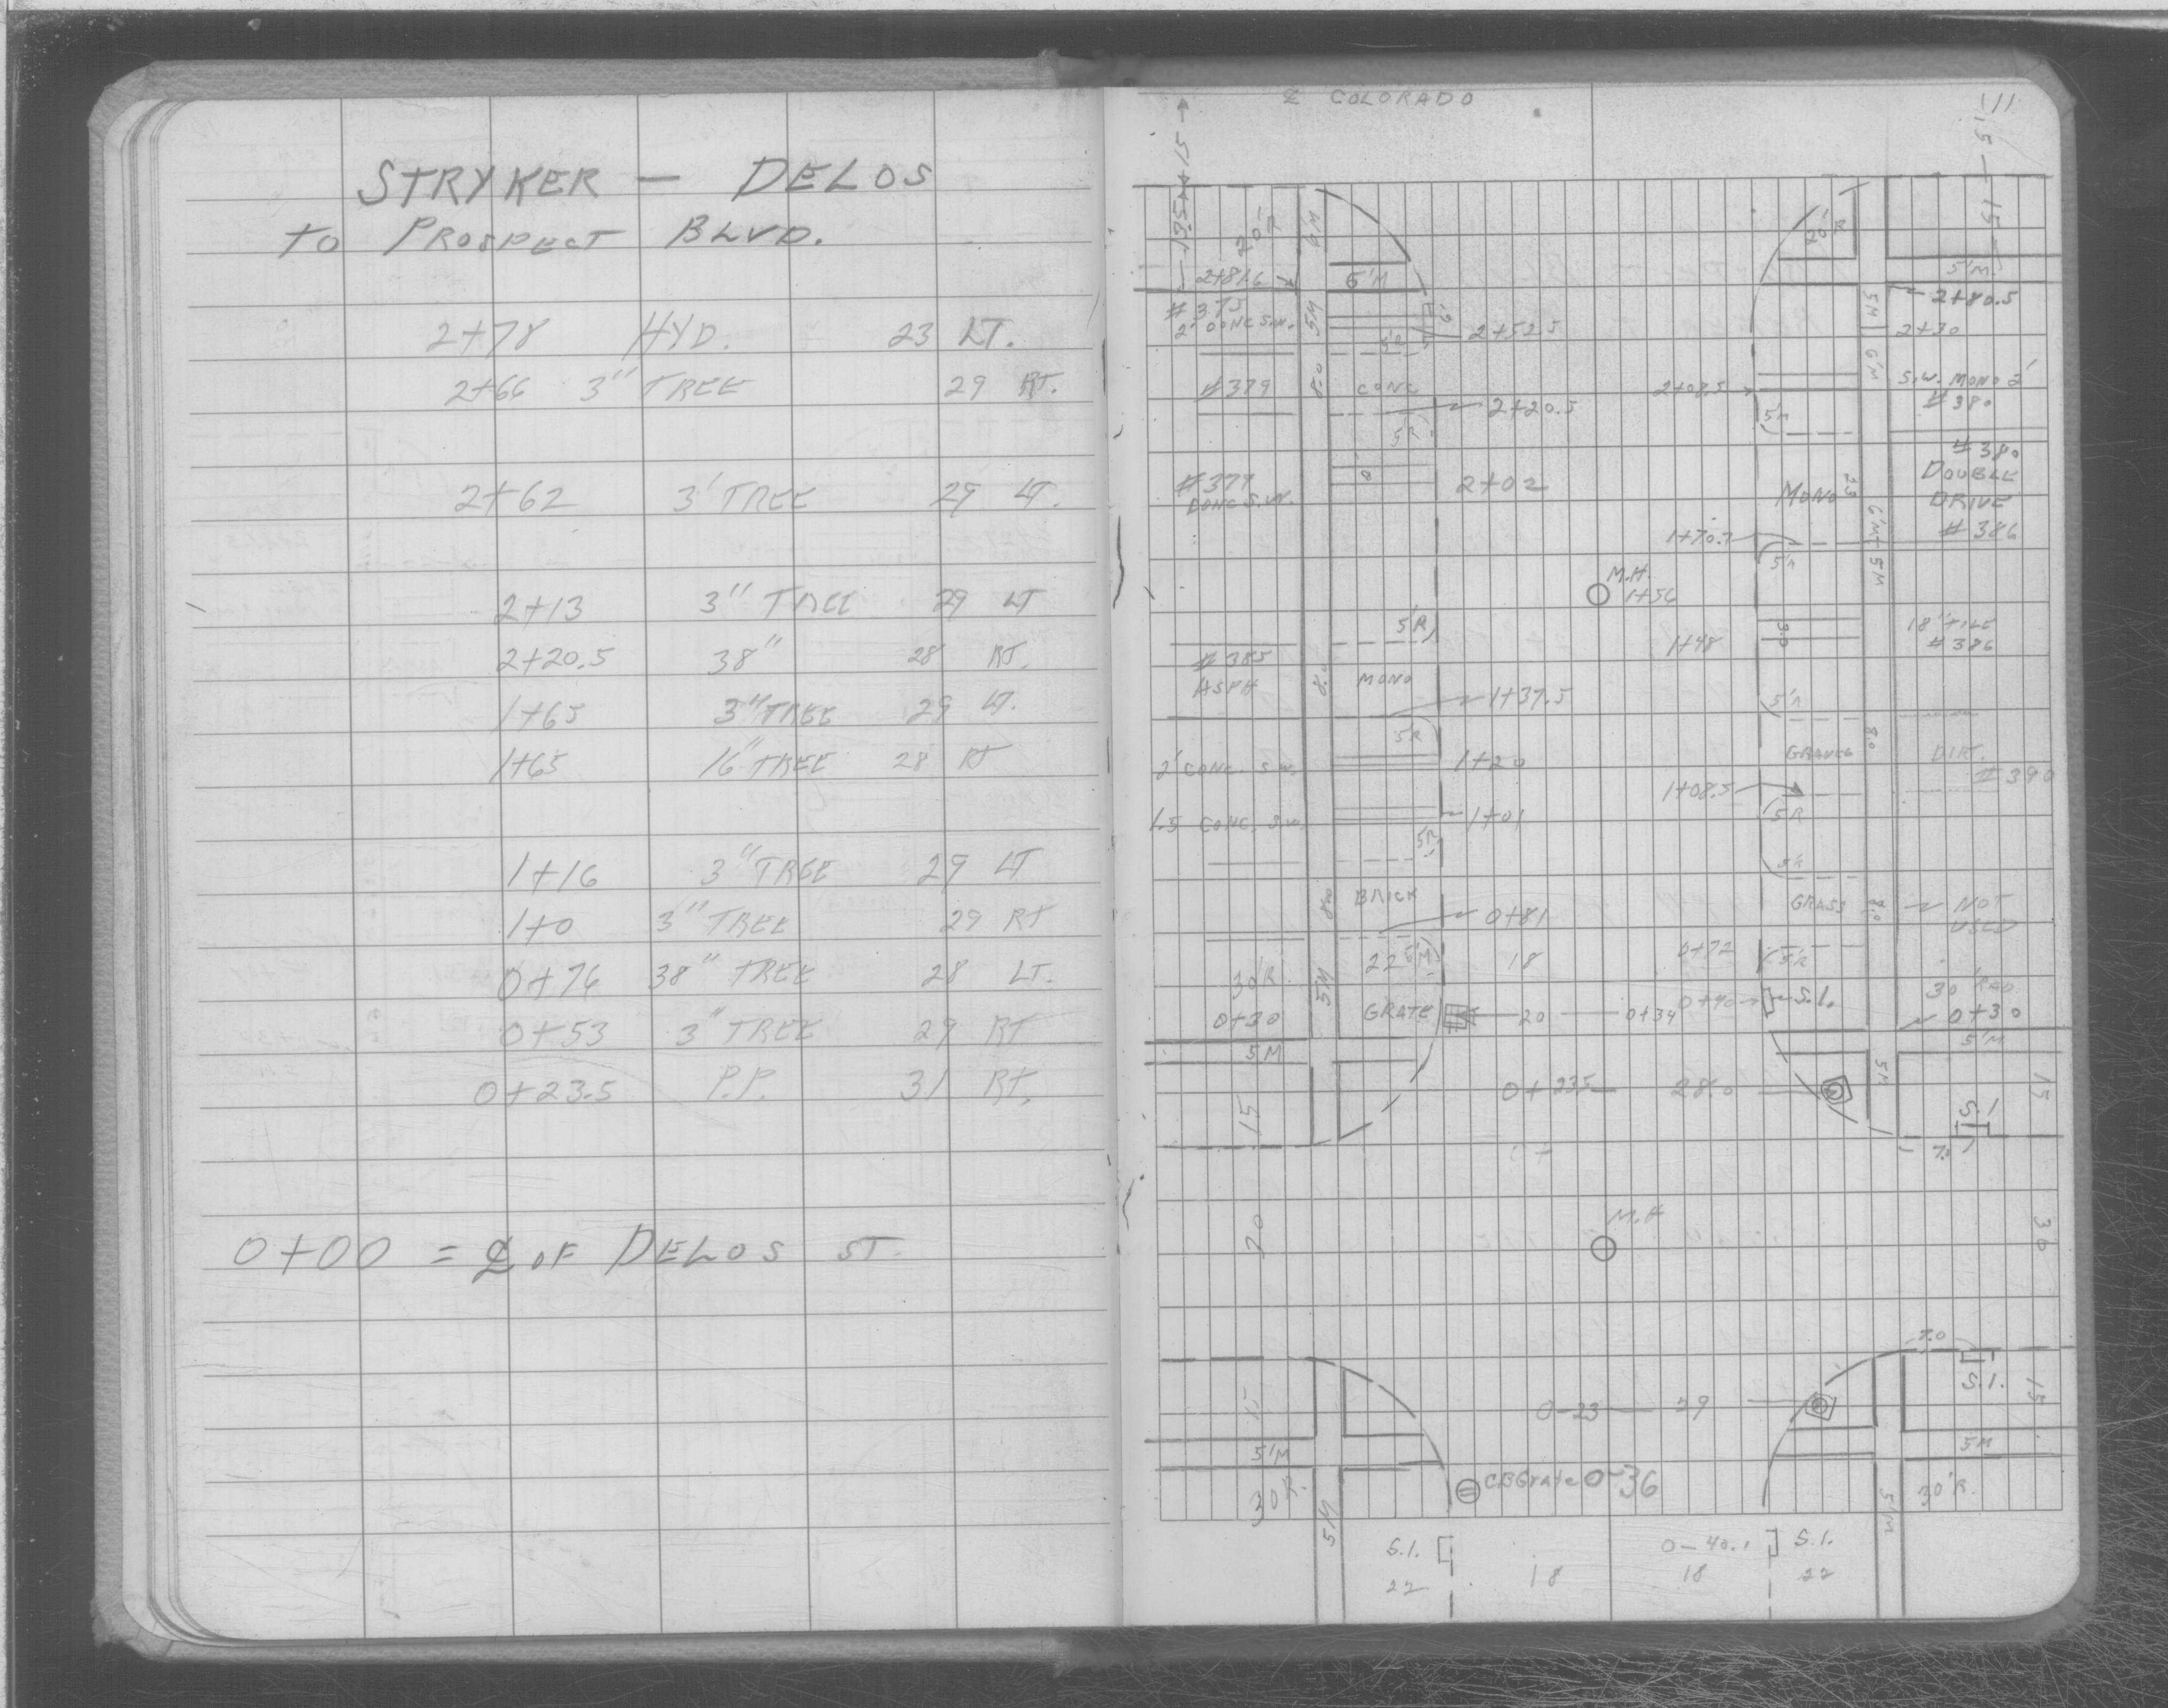 STRYKER — DELOS
to PROSPECT BLVD.
2+78 HYD. 23 LT.
2+66 3" TREE 29 RT.
2+62 3' TREE 29 LT.
2+13 3" TREE 29 LT
2+20.5 38" 28 RT.
1+65 3" TREE 29 LT.
1+65 16" TREE 28 RT
1+16 3" TREE 29 LT
1+0 3" TREE 29 RT
0+76 38" TREE 28 LT.
0+53 3" TREE 29 RT
0+23.5 P.P. 31 RT.
0+00 = ℄ OF DELOS ST.
℄ COLORADO
11
15
15
13.5
20'R
6M
20'R
15
2+81.6
6'M
5'M.
#375
2' CONC S.W.
5M
2+52.5
5M
2+80.5
2+30
5'R
#379
8.0
CONC
2+08.5
6'M
S.W. MONO 2'
#380
2+20.5
5R
5'R
#380
DOUBLE
DRIVE
#386
#379
CONC S.W.
8
2+02
MONO
33
6'M
5M
1+70.7
5'R
M.H.
1+56
5'R
1+48
30
18" TILE
#386
#385
ASPH
8.0
MONO
1+37.5
5'R
5R
8.0
GRAVEL
DIRT.
#390
2' CONC. S.W.
1+20
1+08.5
5R
1.5 CONC. S.W.
1+01
5R
5'R
8.0
BRICK
0+81
GRASS
8.0
NOT
USED
30'R.
5M
22
18
0+72
5'R
0+30
GRATE
20
0+34
0+40
S.I.
30' RAD.
0+30
5M
5'M
15
0+23.5
28.0
5M
S.I
15
7.0
20
M.H
30
7.0
15
0-23
29
S.I.
15
5'M
5M
30'R.
5M
CB Grate 0-36
5'M
30'R.
S.I.
0-40.1
S.I.
22
18
18
22